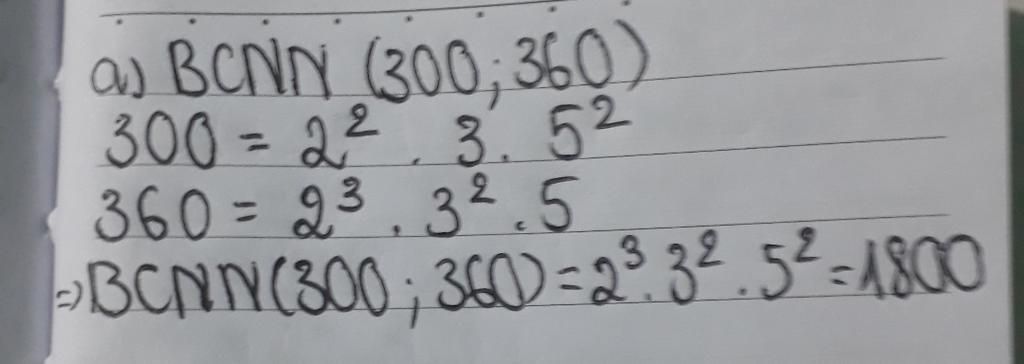 a) BCNN (300; 360)
300 = 2² . 3 . 5²
360 = 2³ . 3² . 5
=> BCNN(300; 360) = 2³ . 3² . 5² = 1800